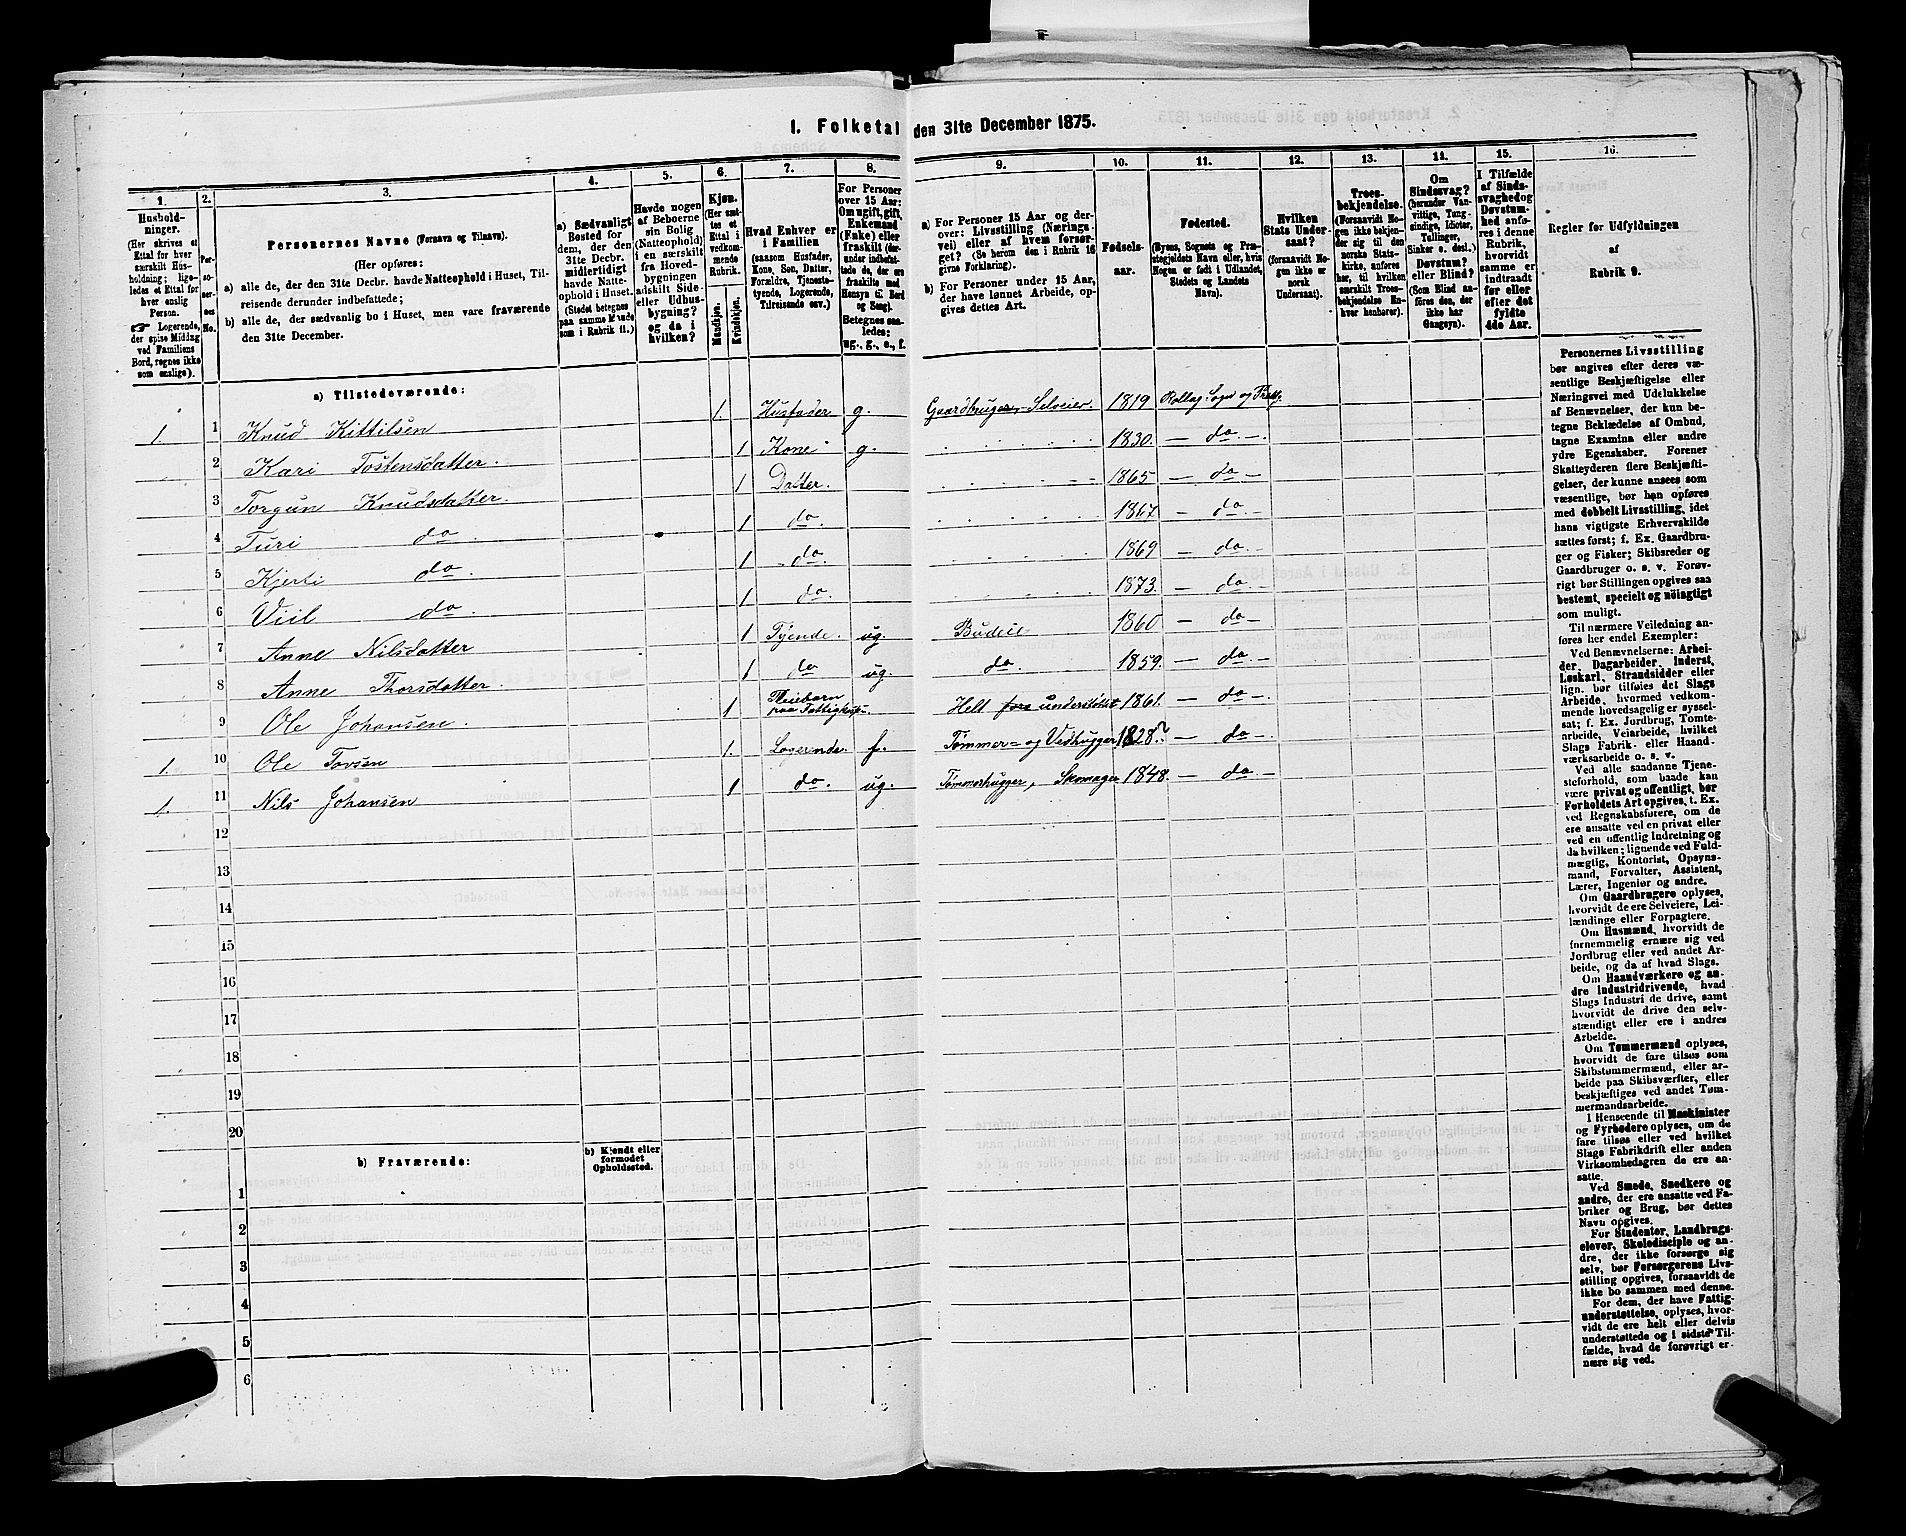 1. Folketal den 31te December 1875.
1. 2. 3. 4. 5. 6. 7. 8. 9. 10. 11. 12. 13. 14. 15. 16.
Husholdninger.
(Her skrives et
Ettal for hver
særskilt Husholdning;
ligeledes et Ettal for
hver enslig
Person.
Logerende,
der spise Middag
ved Familiens
Bord, regnes ikke
som enslige).
Personernes No.
Personernes Navne (Fornavn og Tilnavn).
(Her opføres:
a) alle de, der den 31te Decbr. havde Natteophold i Huset, Tilreisende derunder indbefattede;
b) alle de, der sædvanlig bo i Huset, men vare fraværende
den 31te December.
a) Sædvanligt
Bosted for
dem, der den
31te Decbr.
midlertidigt
havde Natteophold i Huset.
(Stedet betegnes
paa samme Maade
som i Rubrik 11.)
Havde nogen
af Beboerne
sin Bolig
(Natteophold)
i en særskilt
fra Hovedbygningen
adskilt Side- eller Udhusbygning?
og da i
hvilken?
Kjøn.
(Her sættes et
Ettal i
vedkommende
Rubrik.)
Mandkjøn.
Kvindekjøn.
Hvad Enhver er
i Familien
(saasom Husfader,
Kone, Søn, Datter,
Forældre, Tjenestetyende, Logerende,
Tilreisende osv.)
For Personer
over 15 Aar:
Om ugift, gift,
Enkemand
(Enke) eller
fraskilt
Betegnes saaledes:
ug., g., e., f.
a) For Personer 15 Aar og derover: Livsstilling (Næringsvei) eller af hvem forsørget? (Se herom den i Rubrik 16
givne Forklaring).
b) For Personer under 15 Aar,
der have lønnet Arbeide, opgives dettes Art.
Fødselsaar.
Fødested.
(Byens, Sognets og Præstegjeldets Navn eller, hvis
Nogen er født i Udlandet,
Stedets og Landets
Navn).
Hvilken
Stats Undersaat?
(forsaavidt Nogen ikke er
norsk
Undersaat).
Troesbekjendelse.
(Forsaavidt Nogen ikke bekjender sig til den
norske Statskirke, anføres
her, til hvilken
særskilt Troesbekjendelse Enhver henhører).
Om
Sindssvag?
(herunder Vanvittige, Tungsindige, Idioter,
Tullinger,
Sinker o. desl.)
Døvstum?
eller Blind?
(Som Blind anføres den, der
ikke har
Gangsyn).
I Tilfælde
af Sindssvaghed og
Døvstumhed anføres i denne
Rubrik,
hvorvidt
samme er
indtraadt
før eller
efter det
fyldte
4de Aar.
Regler for Udfyldningen
af
Rubrik 9.
a) Tilstedeværende:
1 1 Knud Kittilsen 1. Husfader g. Gaardbruger, Selveier. 1819 Rollag Sogn og Præstg.
2 Kari Tostensdatter. 1 Kone g. 1830. — do —
3 Torgun Knudsdatter. 1 Datter. 1865 — do
4 Turi do. 1 do. 1867. — do. —
5 Kjersti do. 1 do. 1869 — do. —
6 Viil do. 1 do. 1873. — do —
7 Anne Nilsdatter 1 Tyende. ug. Budeie 1860 — do —
8 Anne Thorsdatter. 1 do ug. do. 1859. — do. —
9 Ole Johansen. 1 Pleiebarn paa Fattigkasse Helt understøttet 1861. — do —
1. 10 Ole Tovsen 1. Logerende. f. Tømmer- og Vedhugger 1828? — do —
1. 11 Nils Johansen 1 do. ug. Tømmerhugger, Skomager 1848. — do. —
12
13
14
15
16
17
18
19
20
b) Fraværende:
b) Kjendt eller
formodet
Opholdssted.
1
2
3
4
5
6
Personernes Livsstilling
bør angives efter deres væsentlige Beskjæftigelse eller
Næringsvei med Udelukkelse
af Benævnelser, der kun betegne Beklædelse af Ombud,
tagne Examina eller andre
ydre Egenskaber. Forener
Skatteyderen flere Beskjæftigelser, der kunne ansees som
væsentlige, bør han opføres
med dobbelt Livsstilling, idet
hans vigtigste Erhvervskilde
sættes først; f. Ex. Gaardbruger og Fisker; Skibsreder og
Gaardbruger o. s. v. Forøvrigt bør Stillingen opgives saa
bestemt, specielt og nöiagtigt
som muligt.
Til nærmere Veiledning anføres her endel Exempler:
Ved Benævnelserne: Arbeider, Dagarbeider, Inderst,
Løskarl, Strandsidder eller
lign. bør tilføies det Slags
Arbeide, hvormed vedkommende hovedsagelig er sysselsat; f. Ex. Jordbrug, Tomtearbeide, Veiarbeide, hvilket
Slags Fabrik- eller Haandværksarbeide o. s. v.
Ved alle saadanne Tjenesteforhold, som baade kan
være privat og offentligt, bør
Forholdets Art opgives, t. Ex.
ved Regnskabsførere, om de
ere ansatte ved en privat eller
ved en offentlig Indretning og
da hvilken; lignende ved Fuldmægtig, Kontorist, Opsynsmand, Forvalter, Assistent,
Lærer, Ingeniør og andre.
Om Gaardbrugere oplyses,
hvorvidt de ere Selveiere, Leilændinge eller Forpagtere.
Om Husmænd, hvorvidt de
fornemmelig ernære sig ved
Jordbrug eller ved andet Arbeide, og da af hvad Slags.
Om Haandværkere og andre Industridrivende, hvad
Slags Industri de drive, samt
hvorvidt de drive den selvstændigt eller ere i andres
Arbeide.
Om Tømmermænd oplyses,
hvorvidt de fare tilsøs som
Skibstømmermænd, eller arbeide paa Skibsværfter, eller
beskjæftiges ved andet Tømmermandsarbeide.
I Henseende til Maskinister
og Fyrbødere oplyses, om de
fare tilsøs eller ved hvilket
Slags Fabrikdrift eller anden
Virksomhedsgren de ere ansatte.
Ved Smede, Snedkere og
andre, der ere ansatte ved Fabriker og Brug, bør dettes
Navn opgives.
For Studenter, Landbrugselever, Skoledisciple og andre, der ikke forsørge sig
selv, bør Forsørgerens Livsstilling opgives, forsaavidt de
ikke bo sammen med denne.
For dem, der have Fattigunderstøttelse, oplyses, hvorvidt de ere helt eller delvis
understøttede og i sidste Tilfælde, hvad de forøvrigt ernære sig ved.